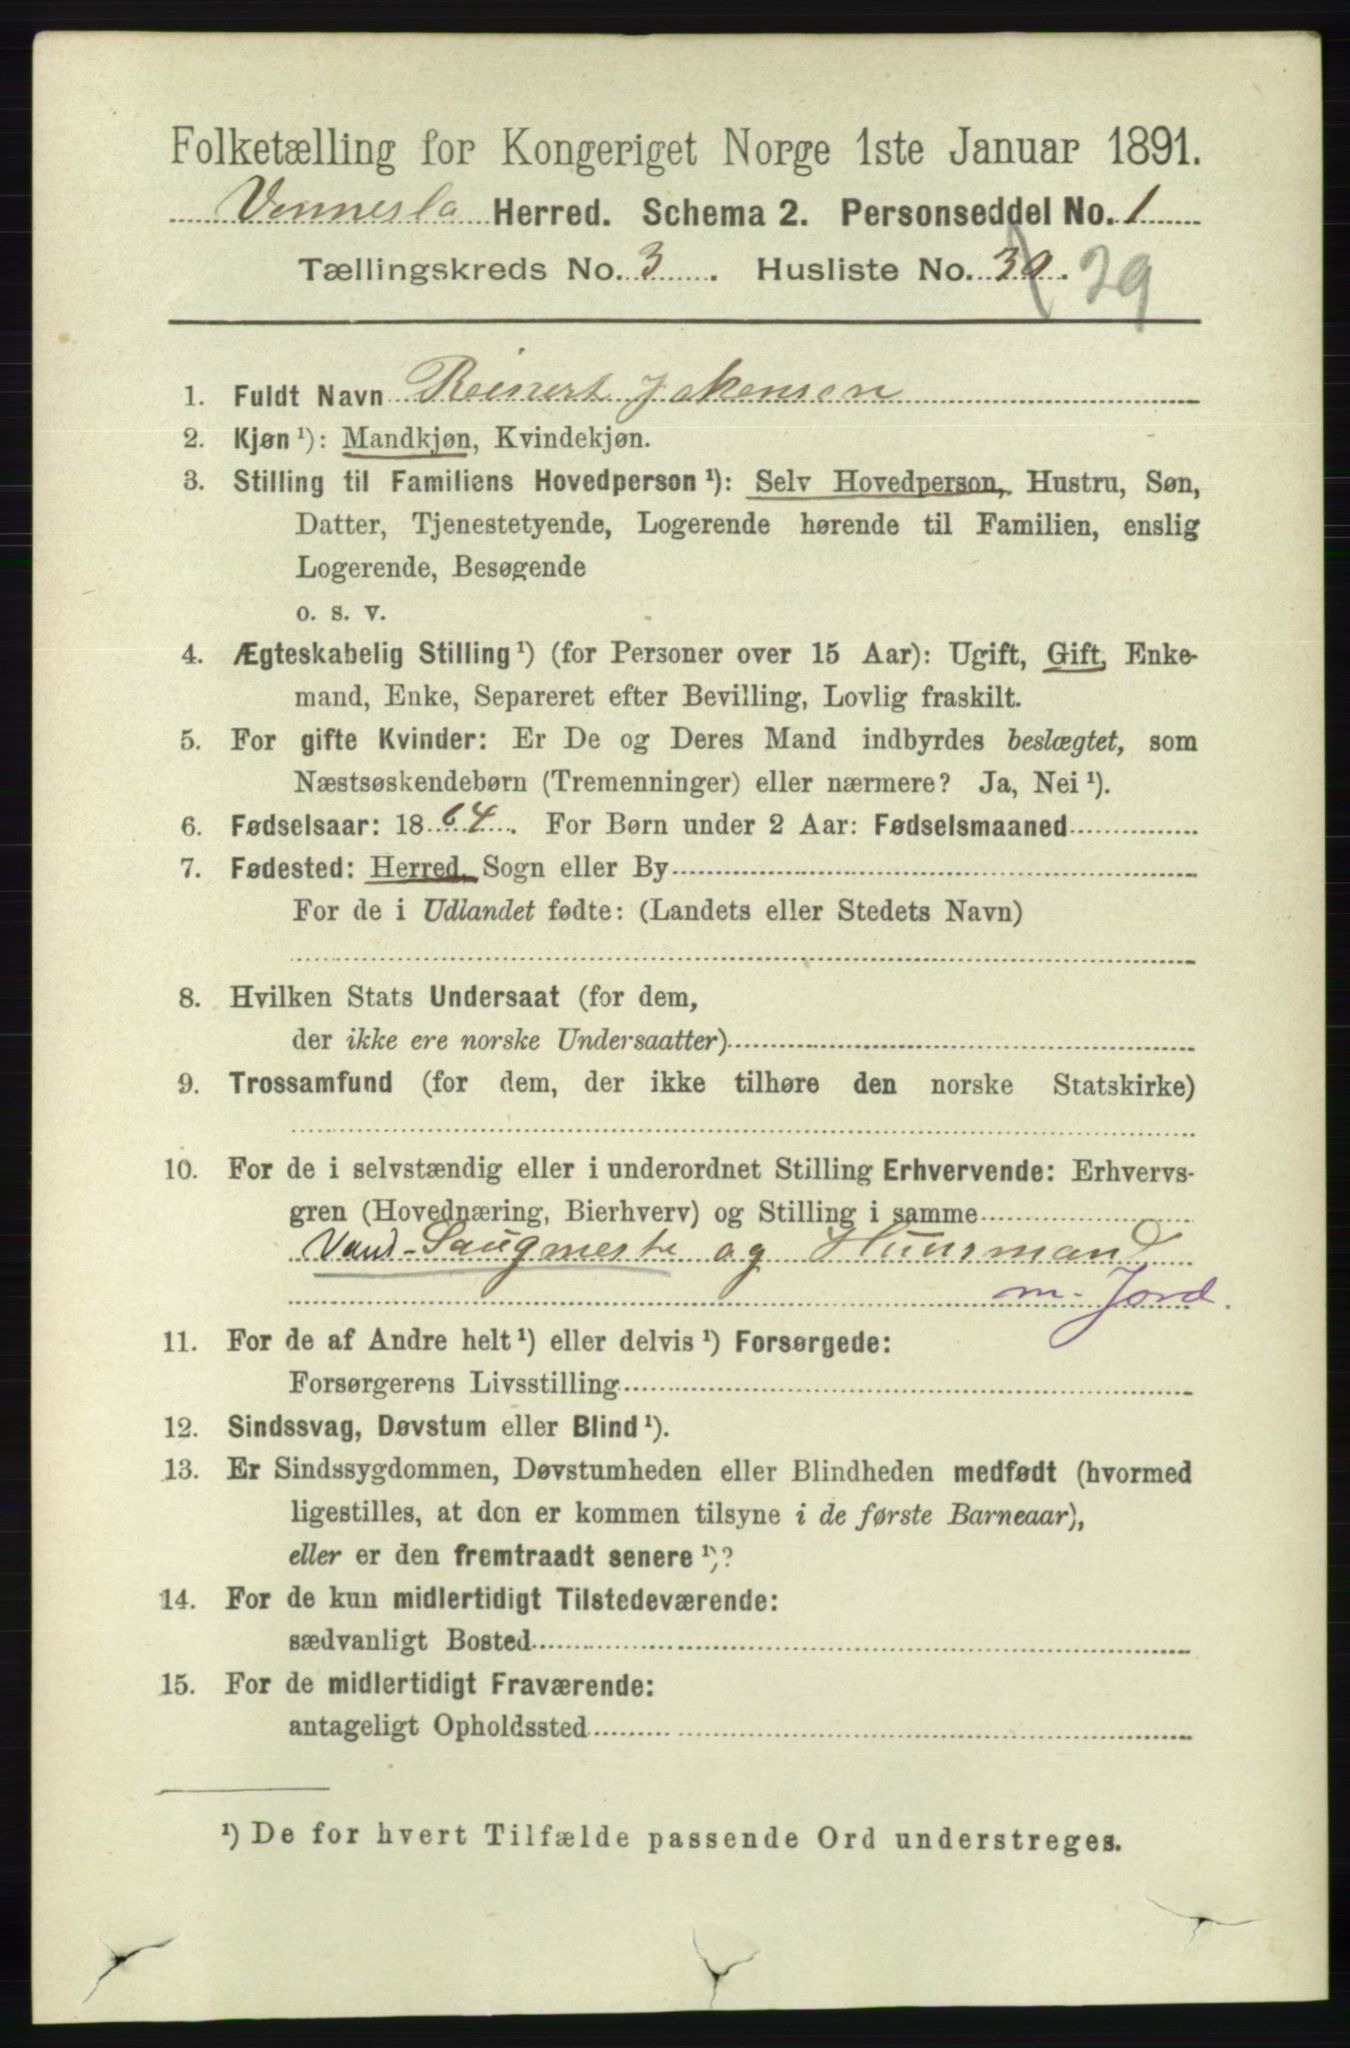 Folketælling for Kongeriget Norge 1ste Januar 1891.
Vennesla Herred. Schema 2. Personseddel No. 1
Tællingskreds No. 3. Husliste No. 30. 29
1. Fuldt Navn Reinert Jakensen
2. Kjøn ¹): Mandkjøn, Kvindekjøn.
3. Stilling til Familiens Hovedperson ¹): Selv Hovedperson, Hustru, Søn,
Datter, Tjenestetyende, Logerende hørende til Familien, enslig
Logerende, Besøgende
o. s. v.
4. Ægteskabelig Stilling ¹) (for Personer over 15 Aar): Ugift, Gift, Enke-
mand, Enke, Separeret efter Bevilling, Lovlig fraskilt.
5. For gifte Kvinder: Er De og Deres Mand indbyrdes beslægtet, som
Næstsøskendebørn (Tremenninger) eller nærmere? Ja, Nei ¹).
6. Fødselsaar: 1864. For Børn under 2 Aar: Fødselsmaaned
7. Fødested: Herred, Sogn eller By
For de i Udlandet fødte: (Landets eller Stedets Navn)
8. Hvilken Stats Undersaat (for dem,
der ikke ere norske Undersaatter)
9. Trossamfund (for dem, der ikke tilhøre den norske Statskirke)
10. For de i selvstændig eller i underordnet Stilling Erhvervende: Erhvervs-
gren (Hovednæring, Bierhverv) og Stilling i samme
Vand-Saugmeste og Huusmand
m. Jord.
11. For de af Andre helt ¹) eller delvis ¹) Forsørgede:
Forsørgerens Livsstilling
12. Sindssvag, Døvstum eller Blind ¹).
13. Er Sindssygdommen, Døvstumheden eller Blindheden medfødt (hvormed
ligestilles, at den er kommen tilsyne i de første Barneaar),
eller er den fremtraadt senere ¹)?
14. For de kun midlertidigt Tilstedeværende:
sædvanligt Bosted
15. For de midlertidigt Fraværende:
antageligt Opholdssted
¹) De for hvert Tilfælde passende Ord understreges.